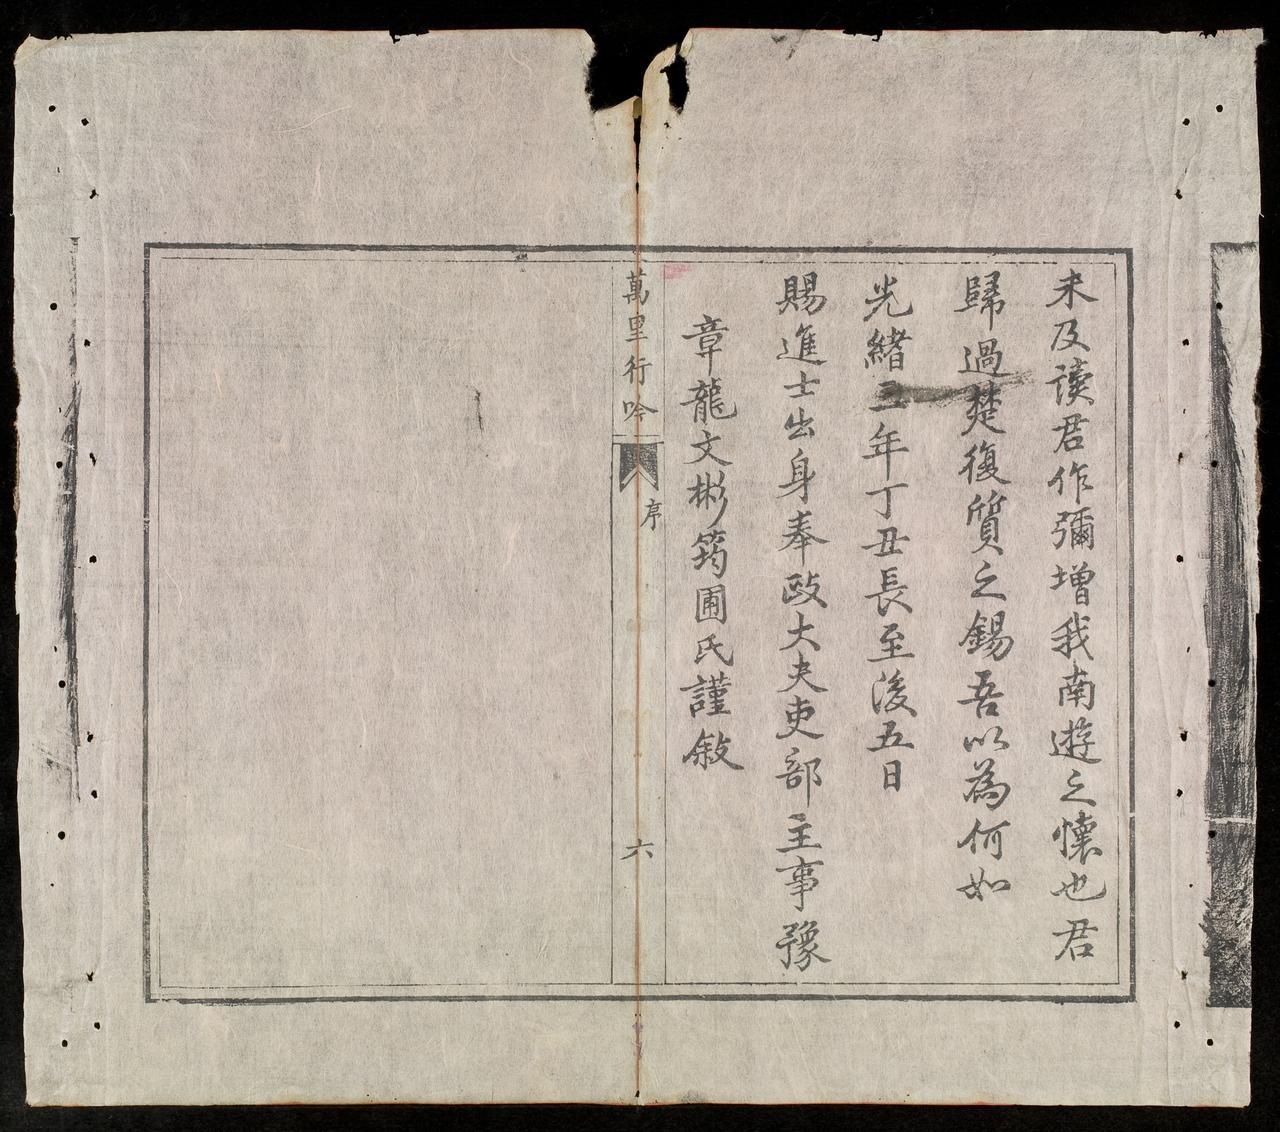 未及讀君作彌增我南遊之懷也君
歸過楚復質之錫吾以為何如
光緒三年丁丑長至後五日
賜進士出身奉政大夫吏部主事豫
章龍文彬筠圃氏謹敘
萬里行吟
序
六